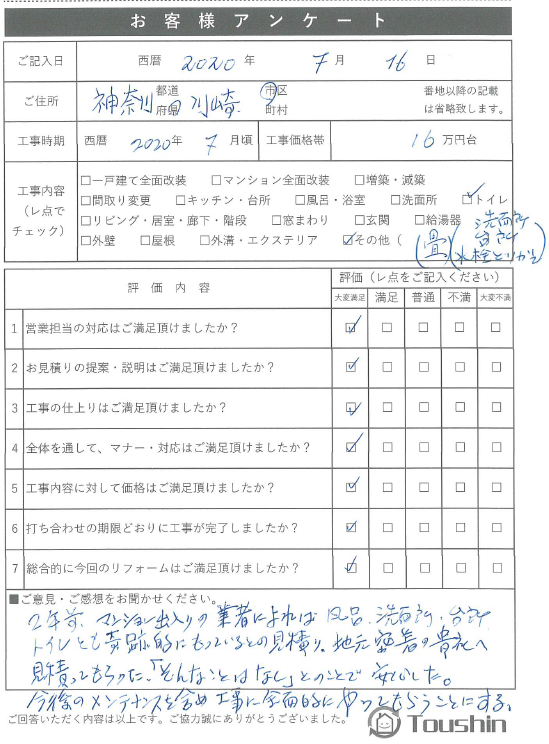 お客様アンケート
ご記入日 西暦 2020 年 7 月 16 日
ご住所 神奈川 都道府県 川崎 市区町村 番地以降の記載は省略致します。
工事時期 西暦 2020年 7 月頃 工事価格帯 16 万円台
工事内容（レ点でチェック）
□一戸建て全面改装 □マンション全面改装 □増築・減築
□間取り変更 □キッチン・台所 □風呂・浴室 □洗面所 ☑トイレ
□リビング・居室・廊下・階段 □窓まわり □玄関 □給湯器
□外壁 □屋根 □外溝・エクステリア ☑その他（畳）（洗面所 台所 水栓とりかえ
評価内容 評価（レ点をご記入ください）
大変満足 満足 普通 不満 大変不満
1 営業担当の対応はご満足頂けましたか？ ☑ □ □ □ □
2 お見積りの提案・説明はご満足頂けましたか？ ☑ □ □ □ □
3 工事の仕上りはご満足頂けましたか？ ☑ □ □ □ □
4 全体を通して、マナー・対応はご満足頂けましたか？ ☑ □ □ □ □
5 工事内容に対して価格はご満足頂けましたか？ ☑ □ □ □ □
6 打ち合わせの期限どおりに工事が完了しましたか？ ☑ □ □ □ □
7 総合的に今回のリフォームはご満足頂けましたか？ ☑ □ □ □ □
■ご意見・ご感想をお聞かせください。
2年前、マンション出入りの業者によれば風呂、洗面所、台所
トイレとも奇跡的にもっているとの見積り。地元密着の貴社へ
見積ってもらった、「そんなことはなし」とのことで安心した。
今後のメンテナンスを含め工事に全面的にやってもらうことにする。
ご回答いただく内容は以上です。ご協力誠にありがとうございました。
Toushin